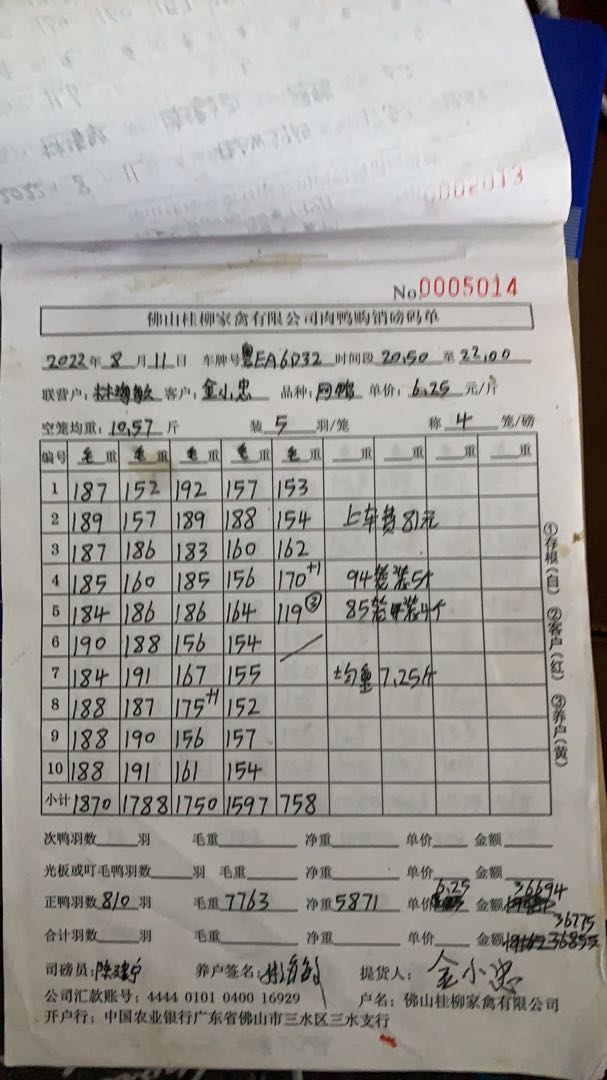 0002013
2022 8 11
No 0005014
佛山桂柳家禽有限公司肉鸭购销磅码单
2022年 8 月 11 日 车牌号 粤EA6D32 时间段 20,50 至 22,00
联营户: 林海敏 客户: 金小忠 品种: 网鸭 单价: 6.25 元/斤
空笼均重: 10,57 斤 装 5 羽/笼 称 4 笼/磅
编号 毛重 毛重 毛重 毛重 毛重 重 重 重 重
1 187 152 192 157 153
2 189 157 189 188 154 上车费81元
3 187 186 183 160 162
4 185 160 185 156 170+1 94笼装5个
5 184 186 186 164 119③ 85笼装4个
6 190 188 156 154
7 184 191 167 155 均重 7.25斤
8 188 187 175+1 152
9 188 190 156 157
10 188 191 161 154
小计 1870 1788 1750 1597 758
①存根(白) ②客户(红) ③养户(黄)
次鸭羽数 羽 毛重 净重 单价 金额
光板或叮毛鸭羽数 羽 毛重 净重 单价 金额
正鸭羽数 810 羽 毛重 7763 净重 5871 单价 6.25 金额 36694
36775
合计羽数 羽 毛重 净重 单价 金额 36855
司磅员: 养户签名: 提货人: 金小忠
公司汇款账号: 4444 0101 0400 16929 户名: 佛山桂柳家禽有限公司
开户行: 中国农业银行广东省佛山市三水区三水支行